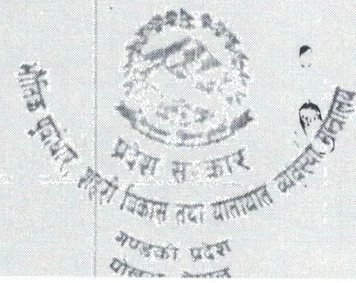 प्रदेश सरकार
भौतिक पूर्वाधार, शहरी विकास तथा यातायात व्यवस्था मन्त्रालय
गण्डकी प्रदेश
पोखरा, नेपाल